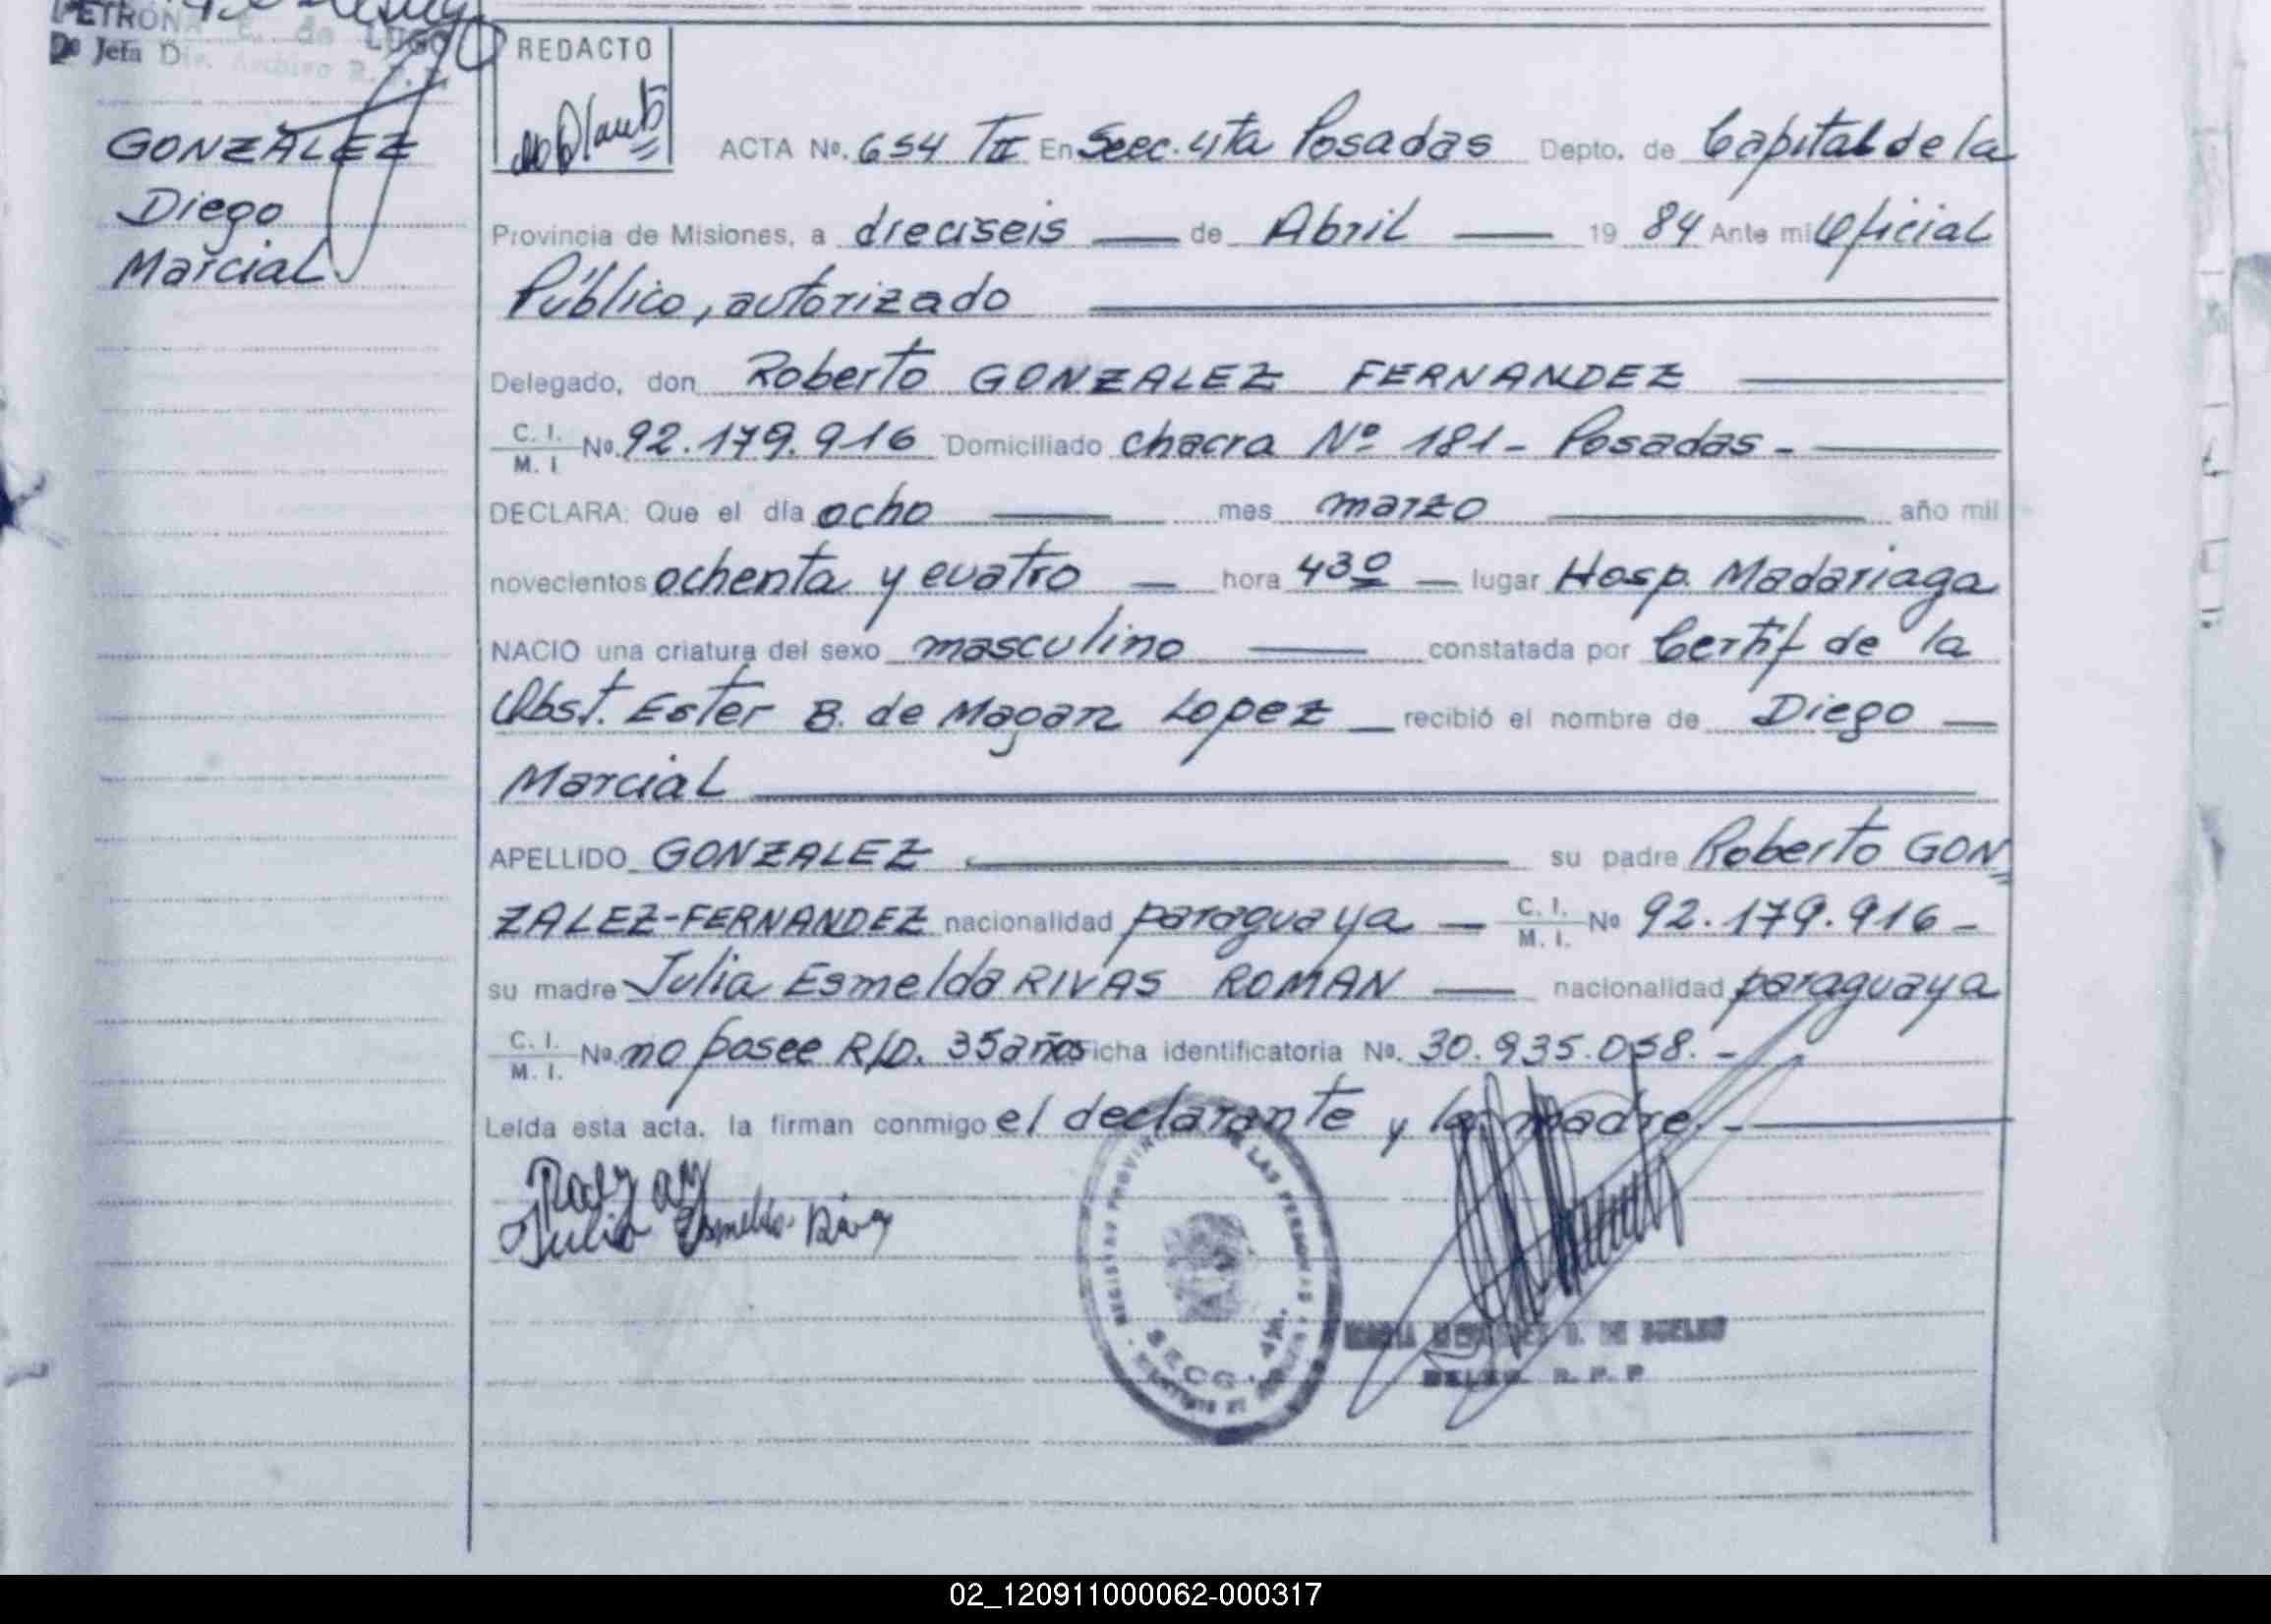 PETRONA E. de LUGO
Jefa Div. Archivo R. P. P.
GONZALEZ
Diego
Marcial
REDACTO
ACTA No. 654 TII En Secc. 4ta Posadas Depto. de Capital de la
Provincia de Misiones, a dieciseis de Abril 19 84 Ante mi Oficial
Público, autorizado
Delegado, don Roberto GONZALEZ FERNANDEZ
C. I. / M. I. No. 92.179.916 Domiciliado chacra Nº 181 - Posadas -
DECLARA: Que el día ocho mes marzo año mil
novecientos ochenta y cuatro hora 430 lugar Hosp. Madariaga
NACIO una criatura del sexo masculino constatada por Certif de la
Obst. Ester B. de Magan Lopez recibió el nombre de Diego
Marcial
APELLIDO GONZALEZ su padre Roberto GON
ZALEZ-FERNANDEZ nacionalidad paraguaya C. I. / M. I. No 92.179.916 -
su madre Julia Esmelda RIVAS ROMAN nacionalidad paraguaya
C. I. / M. I. No. no posee R/D. 35 años Ficha identificatoria No. 30.935.058. -
Leída esta acta, la firman conmigo el declarante y la madre. -
Julia Esmelda Rivas
REGISTRO PROVINCIAL DE LAS PERSONAS
SECC. 4ta.
R. P. P
02_120911000062-000317